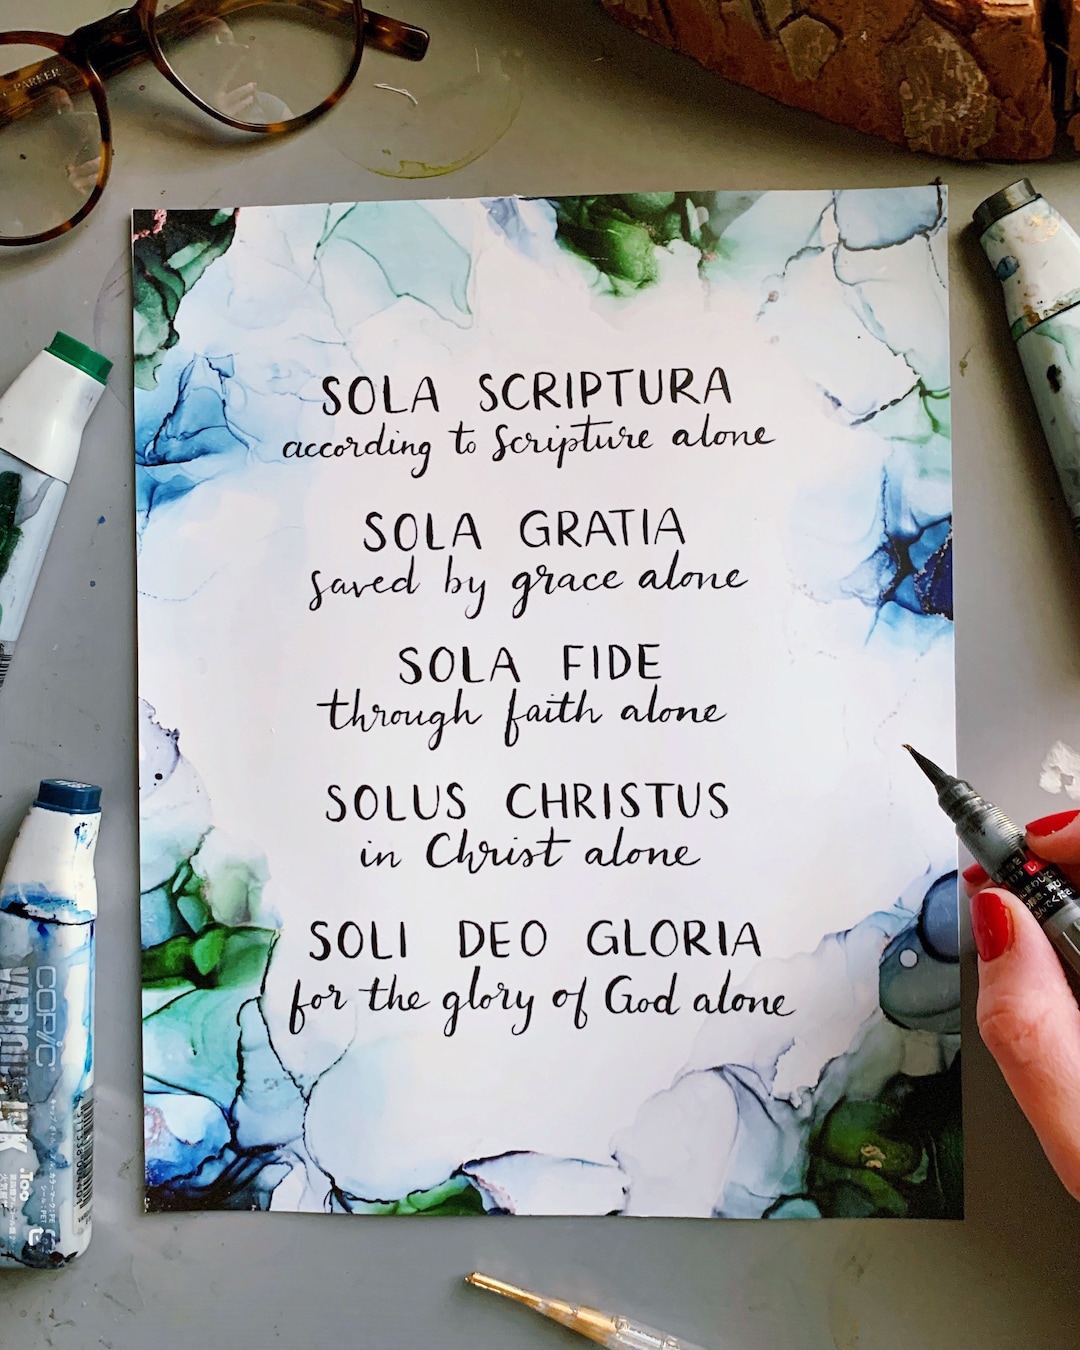 PARKER
SOLA SCRIPTURA
according to Scripture alone
SOLA GRATIA
saved by grace alone
SOLA FIDE
through faith alone
SOLUS CHRISTUS
in Christ alone
SOLI DEO GLORIA
for the glory of God alone
COPIC
VARIOUS INK
.Too